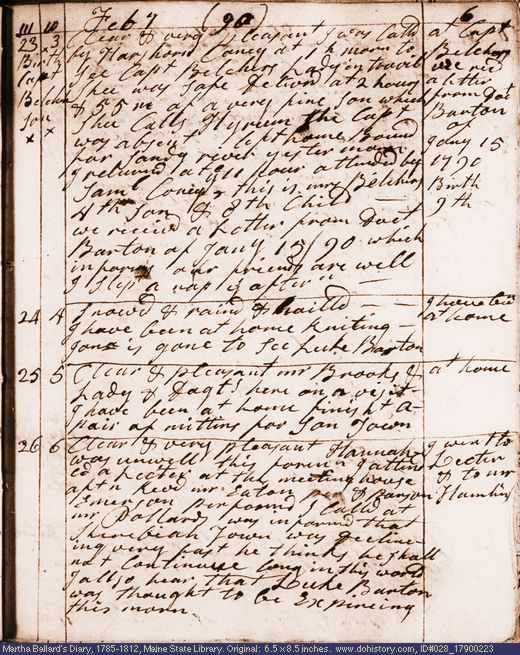 111 10 Feb 7 (90) 6
23 3 Clear & very pleasant I was Calld at Capt
Birth 7 by Harshorn Coney at 1 h morn to Belchers
Capt see Capt Belchers Lady in travail we recd
Belchr shee was Safe Delivrd at 2 hours a letter
Son & 5 m of a very fine Son which from Doct
x x Shee Calls Hyrum the Capt Barton
was absent left home Bound of
for Sandy river yester morn Jany 15
I returned at 9 11 hour attended by 1790
Saml Coney this is mrs Belchers Birth
4th Son & 8th Child — 9th
we receivd a Letter from Doct
Barton of Jany 15 / 90 which
informs our friends are well
I Slep a nap after —
24 4 snowd & raind & haild — — I have been
I have been at home kniting — at home
Jona is gone to see Luke Barton
25 5 Clear & pleasant mr Brooks & at home
Lady & Dagt here on a visit
I have been at home finisht a
pair of mittins for Son Town
26 6 Clear & very pleasant Hannah I went to
was unwell this foren n I attend Lectur
ed a Lecture at the meeting house & to mr
aftn Revd mr Eaton & Parson Hamlin
Emerson performd I Calld at
mr Pollards was informd that
Sherebiah Town was Decline
ing very fast he thinks he shall
not Continuue long in this world
I allso hear that Luke Barton
was thought to be Expireing
this morn
Martha Ballard's Diary, 1785-1812, Maine State Library. Original: 6.5 x 8.5 inches. www.dohistory.com, ID#028_17900223